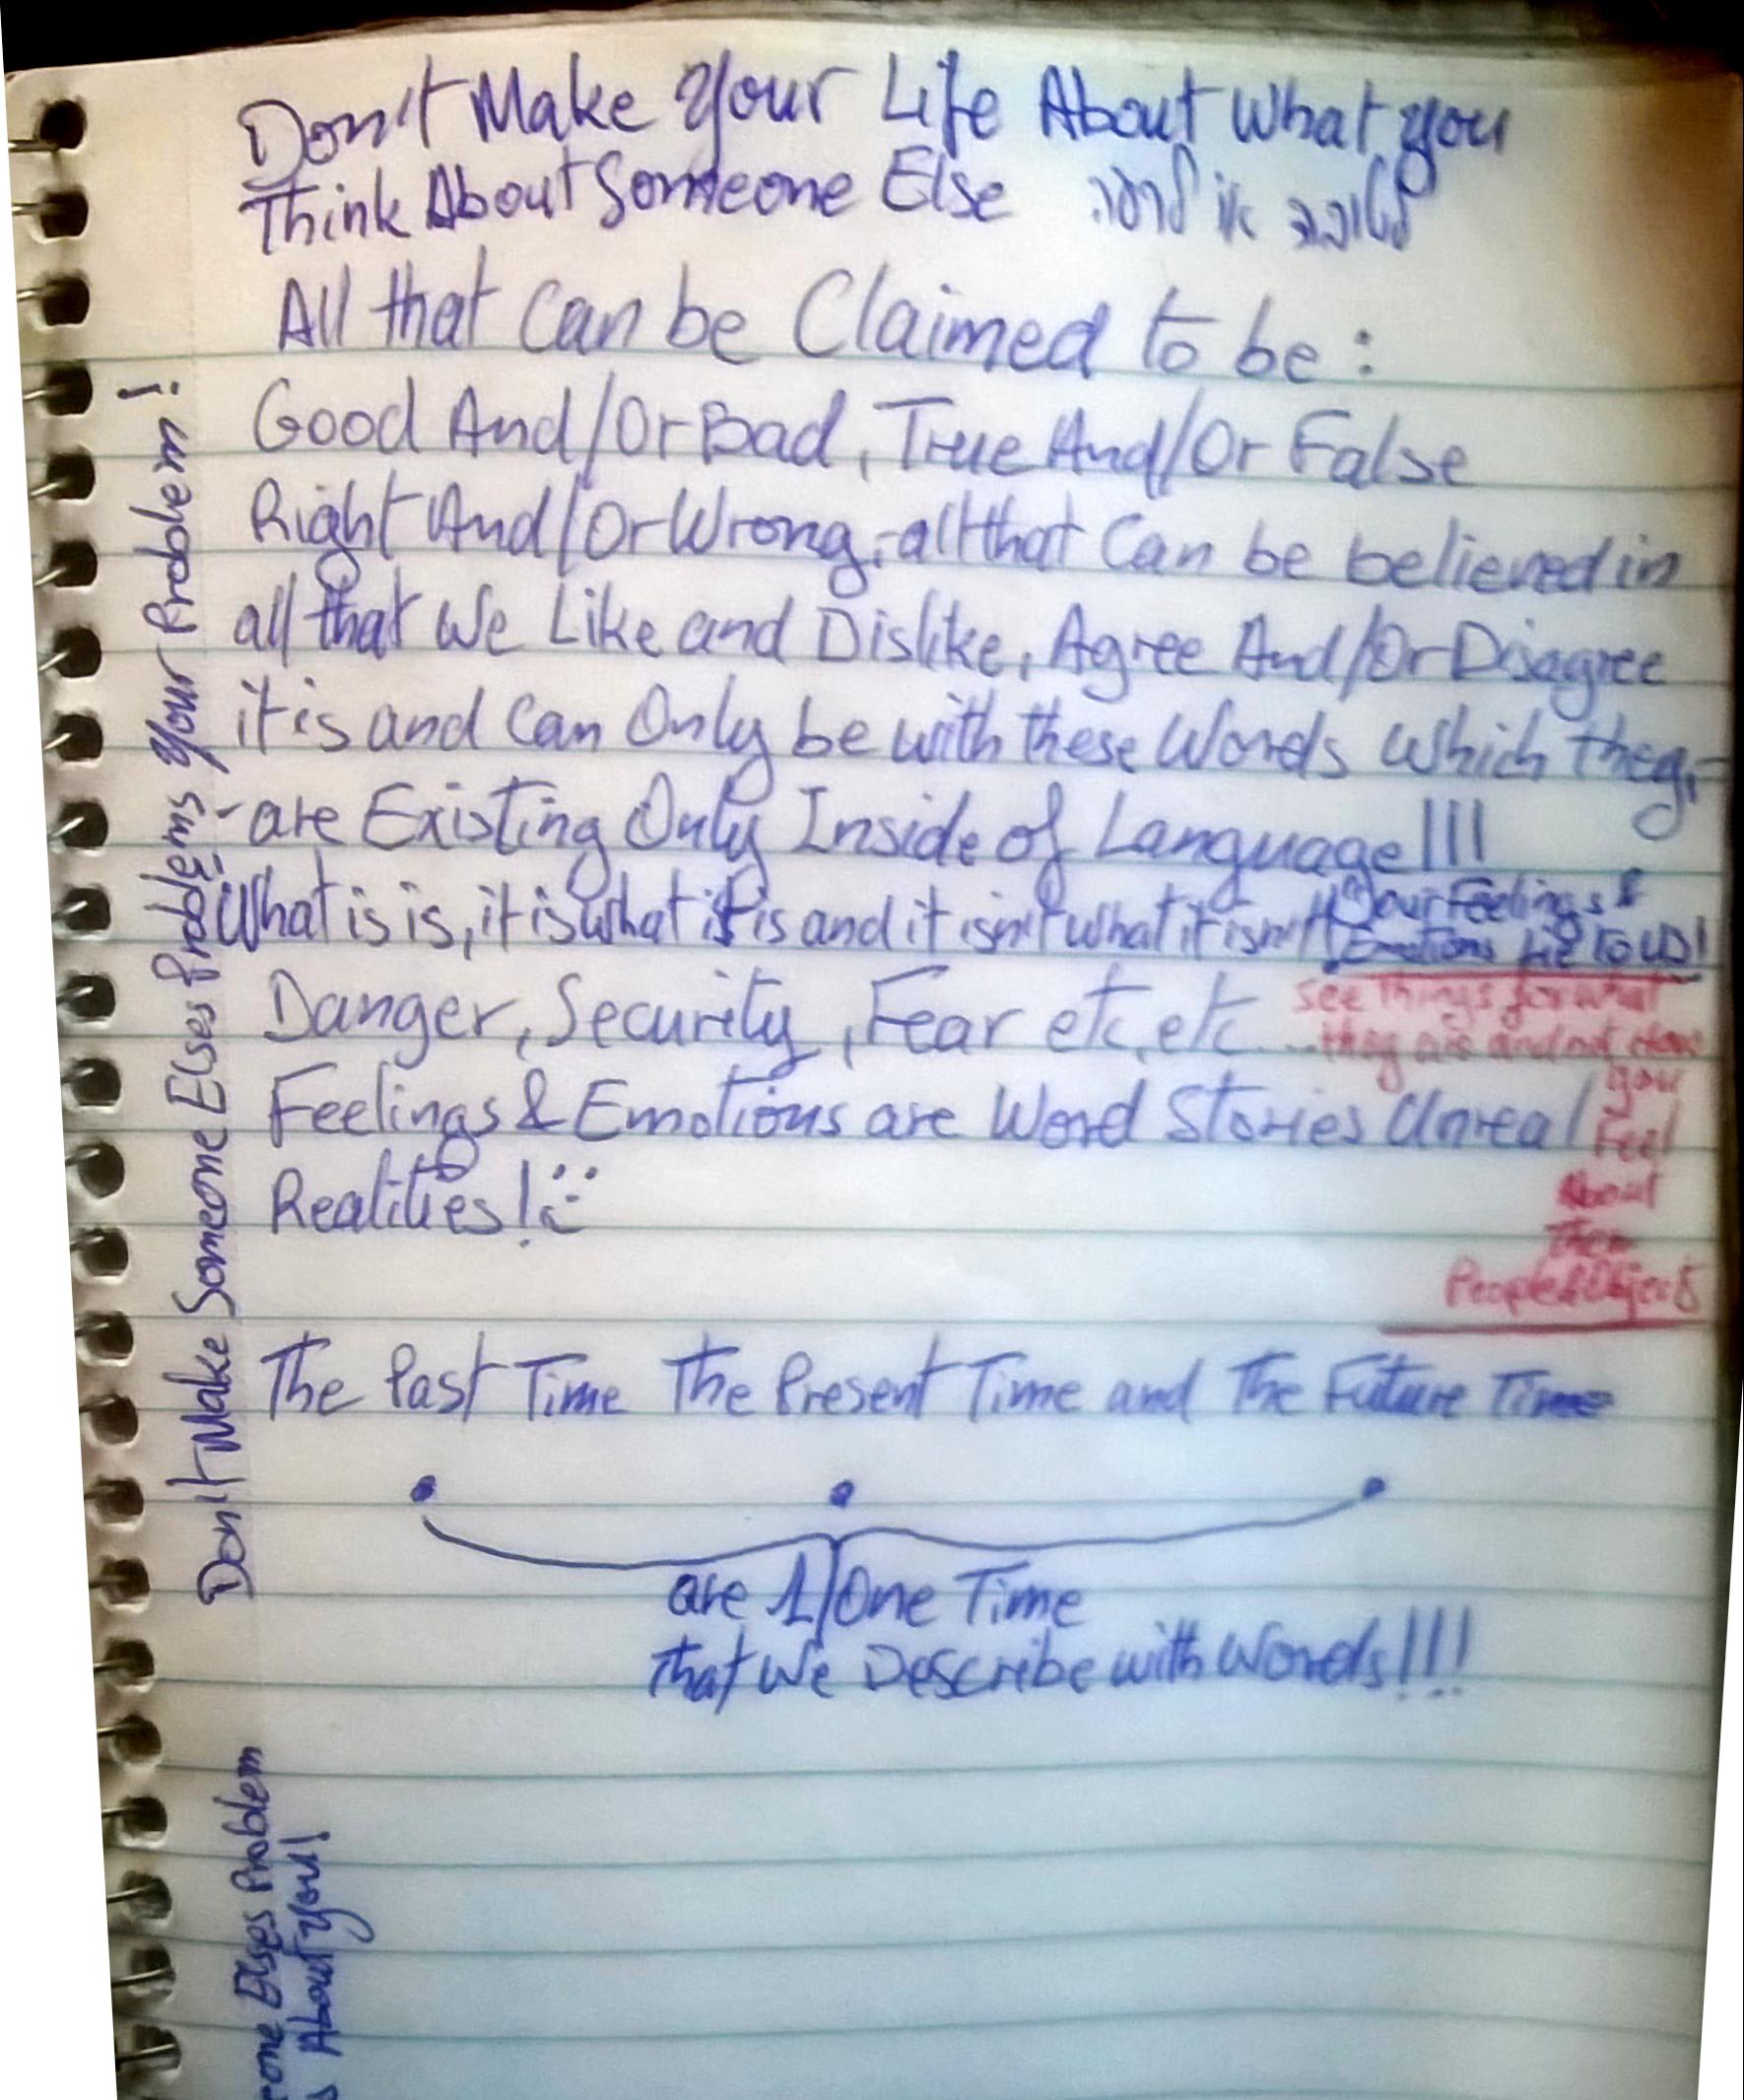 Don't Make Your Life About What you
Think About Someone Else לטובה או לרעה.
All that Can be Claimed to be :
Good And/Or Bad, True And/Or False
Right And/Or Wrong,-all that Can be believed in
all that We Like and Dislike, Agree And/Or Disagree
it is and Can Only be with these Words which they,-
-are Existing Only Inside of Language!!!
What is is, it is what it is and it isn't what it isn't!
Our Feelings &
Emotions Lie To US!
Danger, Security, Fear etc, etc...
See Things for what
they are and not How
you
Feel
About
Them
People&Objects
Feelings & Emotions are Word Stories Unreal
Realities!
The Past Time The Present Time and The Future Time
are 1/One Time
that We Describe with Words!!!
Don't Make Someone Elses Problems Your Problem!
eone Elses Problem
s About You!